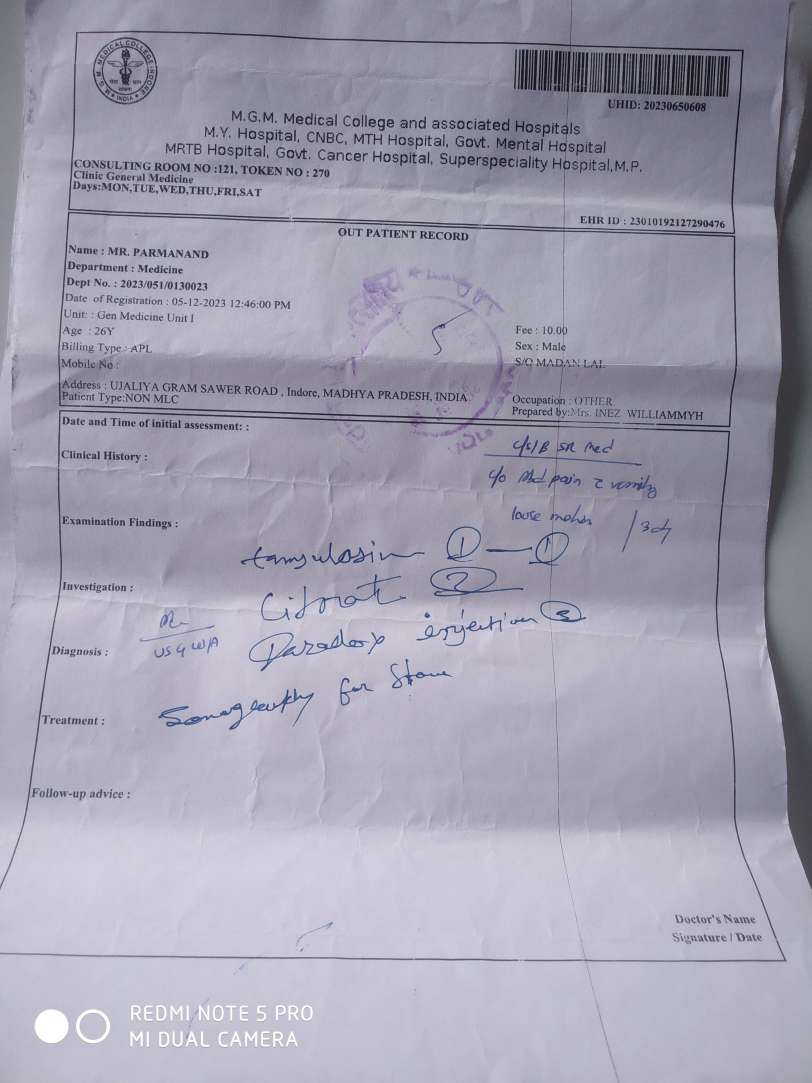 M.G.M. MEDICAL COLLEGE INDORE
INDIA
UHID: 20230650608
M.G.M. Medical College and associated Hospitals
M.Y. Hospital, CNBC, MTH Hospital, Govt. Mental Hospital
MRTB Hospital, Govt. Cancer Hospital, Superspeciality Hospital,M.P.
CONSULTING ROOM NO :121, TOKEN NO : 270
Clinic General Medicine
Days:MON,TUE,WED,THU,FRI,SAT
EHR ID : 23010192127290476
OUT PATIENT RECORD
Name : MR. PARMANAND
Department : Medicine
Dept No. : 2023/051/0130023
Date of Registration : 05-12-2023 12:46:00 PM
Unit: : Gen Medicine Unit I
Age : 26Y
Fee : 10.00
Billing Type : APL
Sex : Male
Mobile No :
S/O MADAN LAL
Address : UJALIYA GRAM SAWER ROAD , Indore, MADHYA PRADESH, INDIA
Patient Type:NON MLC
Occupation : OTHER
Prepared by:Mrs. INEZ WILLIAMMYH
Date and Time of initial assessment: :
Clinical History :
c/s/B SR Med
c/o Abd pain c vomiting
loose motion /3d
Examination Findings :
tamsulosin 1 — 1
Investigation :
USG W/A
injection
Diagnosis :
Sonography for Stone
Treatment :
Follow-up advice :
Doctor's Name
Signature / Date
REDMI NOTE 5 PRO
MI DUAL CAMERA